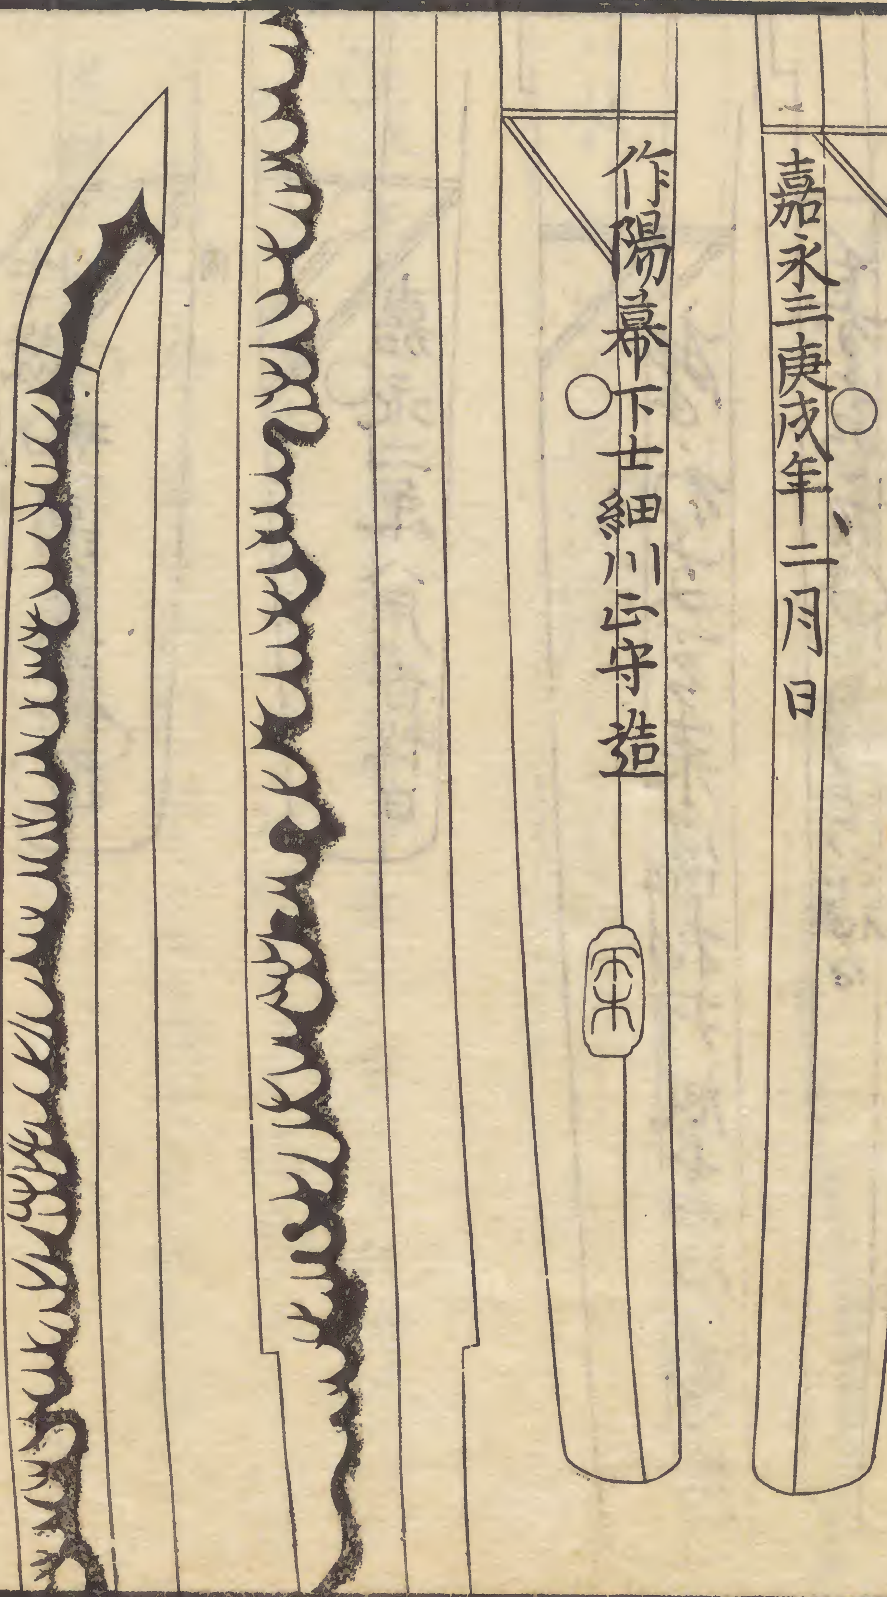 嘉永三庚戌年二月日
作陽幕下士細川正守造